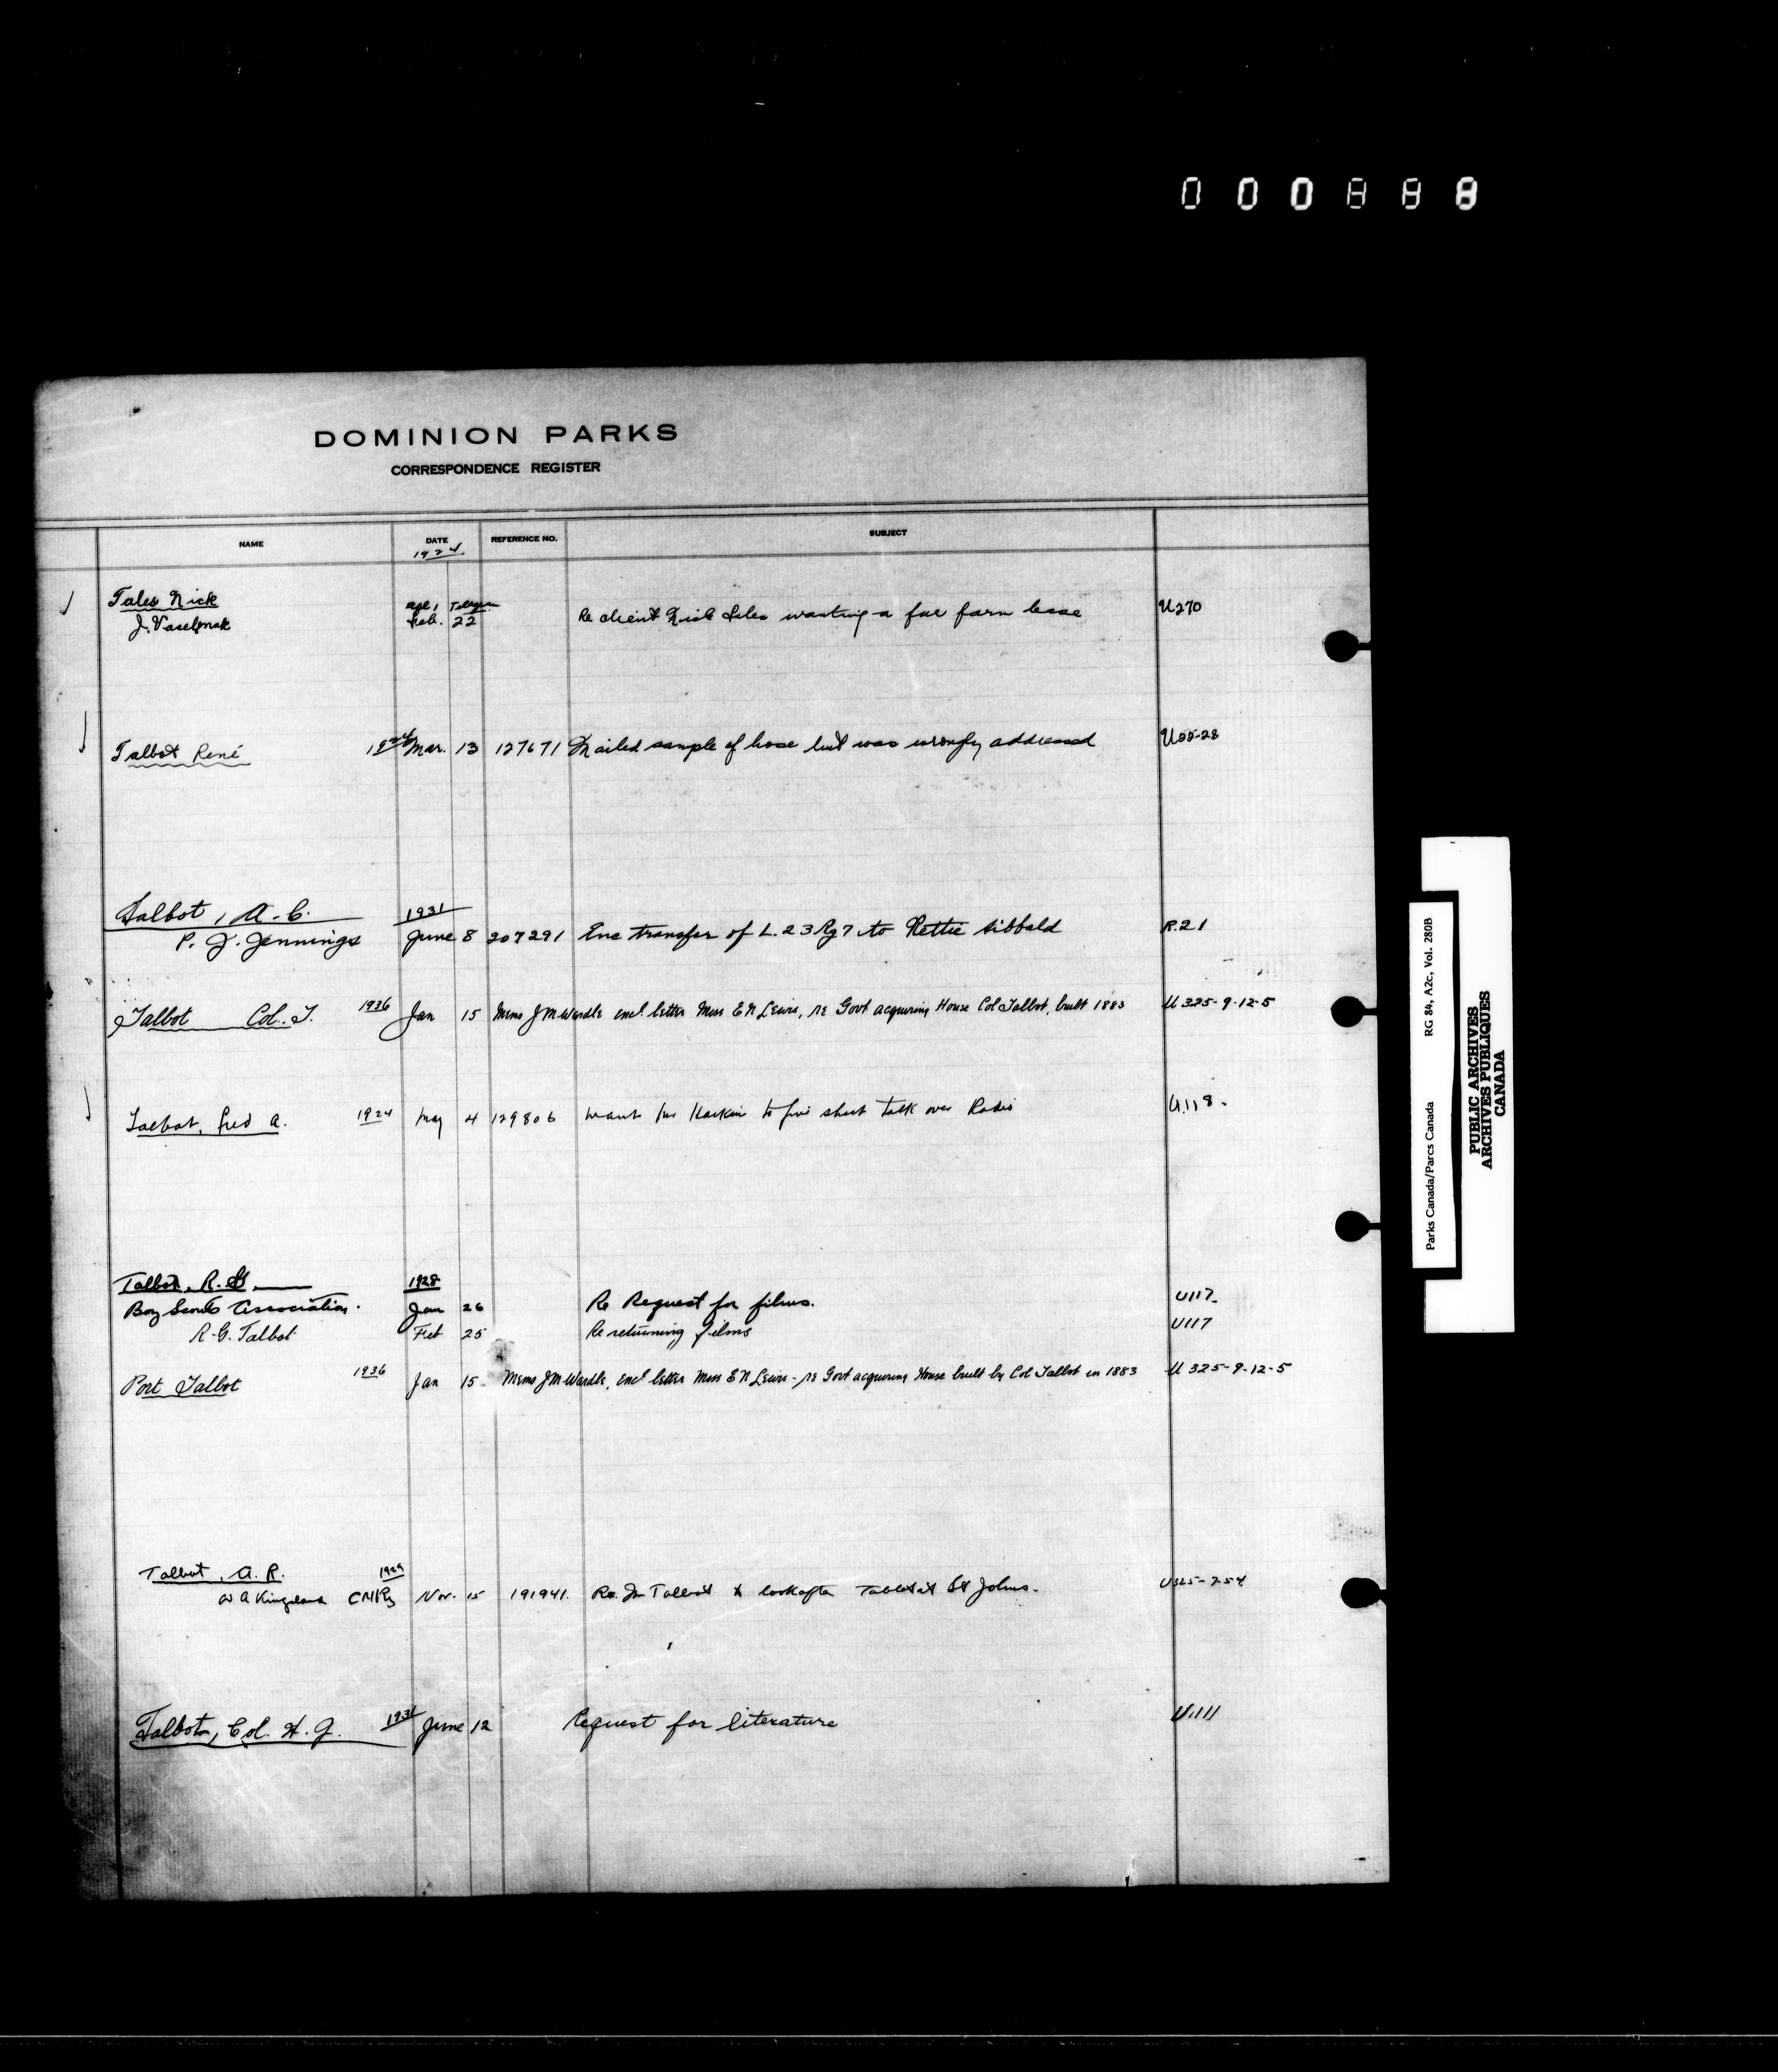 000888
DOMINION PARKS
CORRESPONDENCE REGISTER
NAME DATE REFERENCE NO. SUBJECT
1924
Tales Nick
J. Feb. 22 Re client Nick Tales wanting a fur farm lease U270
Talbot René 1924 Mar. 13 127671 Mailed sample of hose but was wrongly addressed U55-28
Talbot, A. C. 1931
P. J. Jennings June 8 207291 Enc transfer of L. 23 Rg 7 to Rettie Sibbald R.21
Talbot Col. T. 1936 Jan 15 Memo J M Wardle encl letter Miss E N Lewis, re Govt acquiring House Col Talbot, built 1883 U 325-9-12-5
Talbot, Fred A. 1924 May 4 129806 wants Mr Harkin to give short talk over Radio U.118.
Talbot, R. G. 1928
Boy Scouts Association. Jan 26 Re Request for films. U117
R. G. Talbot Feb 25 Re returning films U117
Port Talbot 1936 Jan 15 Memo J M Wardle, encl letter Miss E N Lewis - re Govt acquiring House built by Col Talbot in 1883 U 325-9-12-5
Talbot, A. R. 1929
W A Kingsland CNRy Nov. 15 191941. Re. Mr Talbot to look after Tablet at St Johns. U325-7-54
Talbot, Col. H. J. 1931 June 12 Request for literature U.111
Parks Canada/Parcs Canada RG 84, A2c, Vol. 280B
PUBLIC ARCHIVES
ARCHIVES PUBLIQUES
CANADA